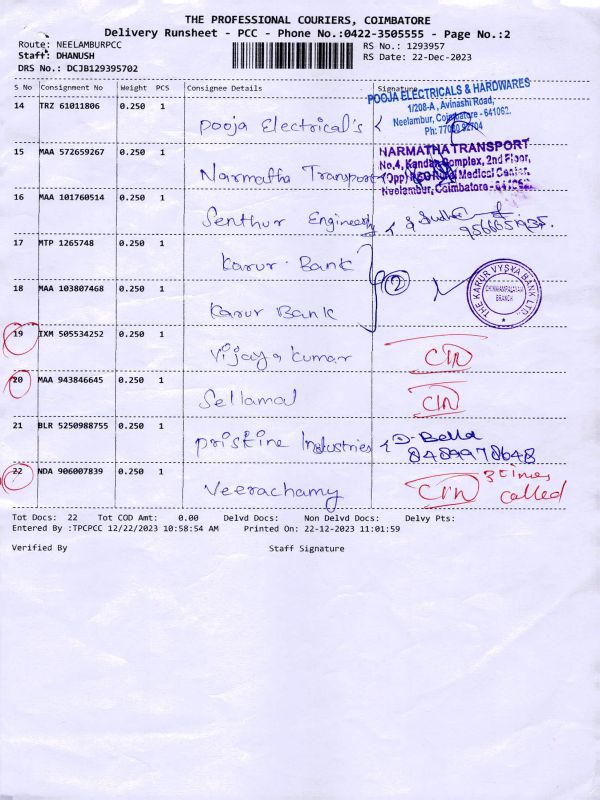 THE PROFESSIONAL COURIERS, COIMBATORE
Delivery Runsheet - PCC - Phone No.:0422-3505555 - Page No.:2
Route: NEELAMBURPCC RS No.: 1293957
Staff: DHANUSH RS Date: 22-Dec-2023
DRS No.: DCJB129395702
S No Consignment No Weight PCS Consignee Details Signature
14 TRZ 61011806 0.250 1 Pooja Electrical's
POOJA ELECTRICALS & HARDWARES
1/208-A, Avinashi Road,
Neelambur, Coimbatore - 641062.
15 MAA 572659267 0.250 1 Narmatha Transport
NARMATHA TRANSPORT
No.4, Kandan Complex, 2nd Floor,
Medical Center,
Neelambur, Coimbatore -
16 MAA 101760514 0.250 1 Senthur
17 MTP 1265748 0.250 1 Karur Bank
2
18 MAA 103807468 0.250 1 Karur Bank
THE KARUR VYSYA BANK LTD.
BRANCH
19 IXM 505534252 0.250 1 Vijaya kumar
20 MAA 943846645 0.250 1 Sellamal
21 BLR 5250988755 0.250 1 Pristine Industries
8489978648
22 NDA 906007839 0.250 1 Veerachamy 3 times
called
Tot Docs: 22 Tot COD Amt: 0.00 Delvd Docs: Non Delvd Docs: Delvy Pts:
Entered By :TPCPCC 12/22/2023 10:58:54 AM Printed On: 22-12-2023 11:01:59
Verified By Staff Signature